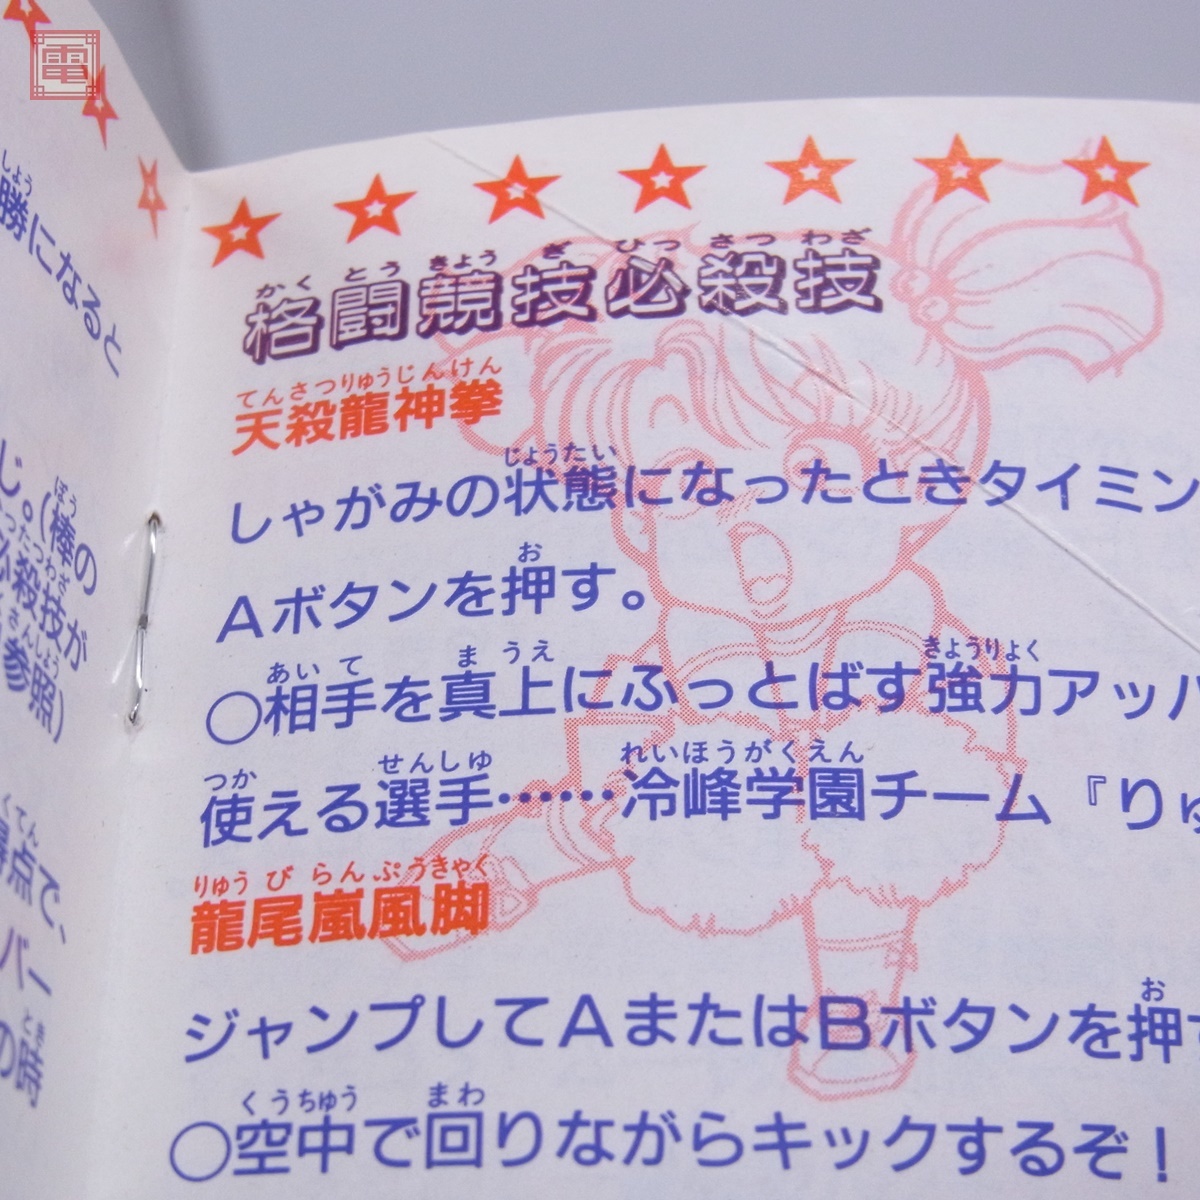 電
しょう
勝になると
ほう
(棒の
じ。
わざ
殺技が
さんしょう
参照)
てん
点で、
バー
とき
の時
かくとうきょうぎひっさつわざ
格闘競技必殺技
てんさつりゅうじんけん
天殺龍神拳
じょうたい
しゃがみの状態になったときタイミン
お
Aボタンを押す。
あいて まうえ きょうりょく
○相手を真上にふっとばす強力アッパ
つか せんしゅ れいほうがくえん
使える選手……冷峰学園チーム『りゅ
りゅうびらんぷうきゃく
龍尾嵐風脚
お
ジャンプしてAまたはBボタンを押す
くうちゅう まわ
○空中で回りながらキックするぞ!